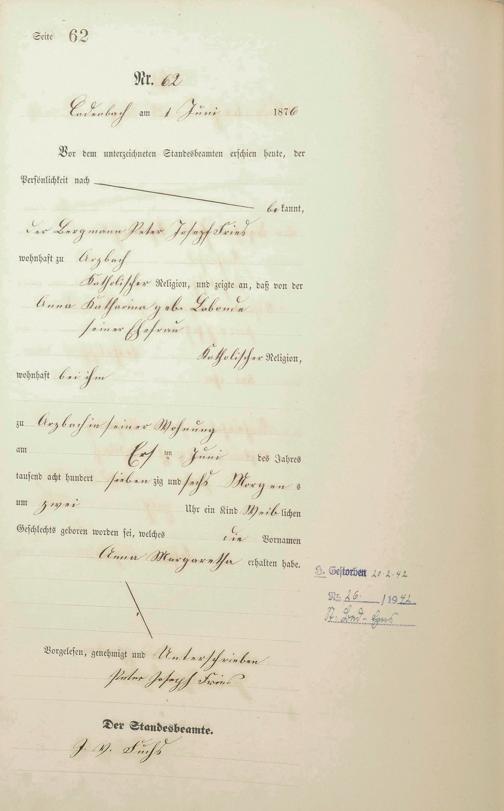 Seite 62
Nr. 62
Cadenbach am 1 Juni 1876
Vor dem unterzeichneten Standesbeamten erschien heute, der
Persönlichkeit nach
bekannt,
der Bergmann Peter Josepf Fries
wohnhaft zu Arzbach
Katholischer Religion, und zeigte an, daß von der
Anna Katharina geb. Labonde
seiner Ehefrau
Katholischer Religion,
wohnhaft bei ihm
zu Arzbach in seiner Wohnung
am Ersten Juni des Jahres
tausend acht hundert sieben zig und sechs Morgens
um zwei Uhr ein Kind Weiblichen
Geschlechts geboren worden sei, welches die Vornamen
Anna Margaretha erhalten habe.
Vorgelesen, genehmigt und Unterschrieben
Peter Joseph Fries
Der Standesbeamte.
J. V. Fuchs
Gestorben 20.2.42
Nr. 26 /1942
St. Bad-Ems